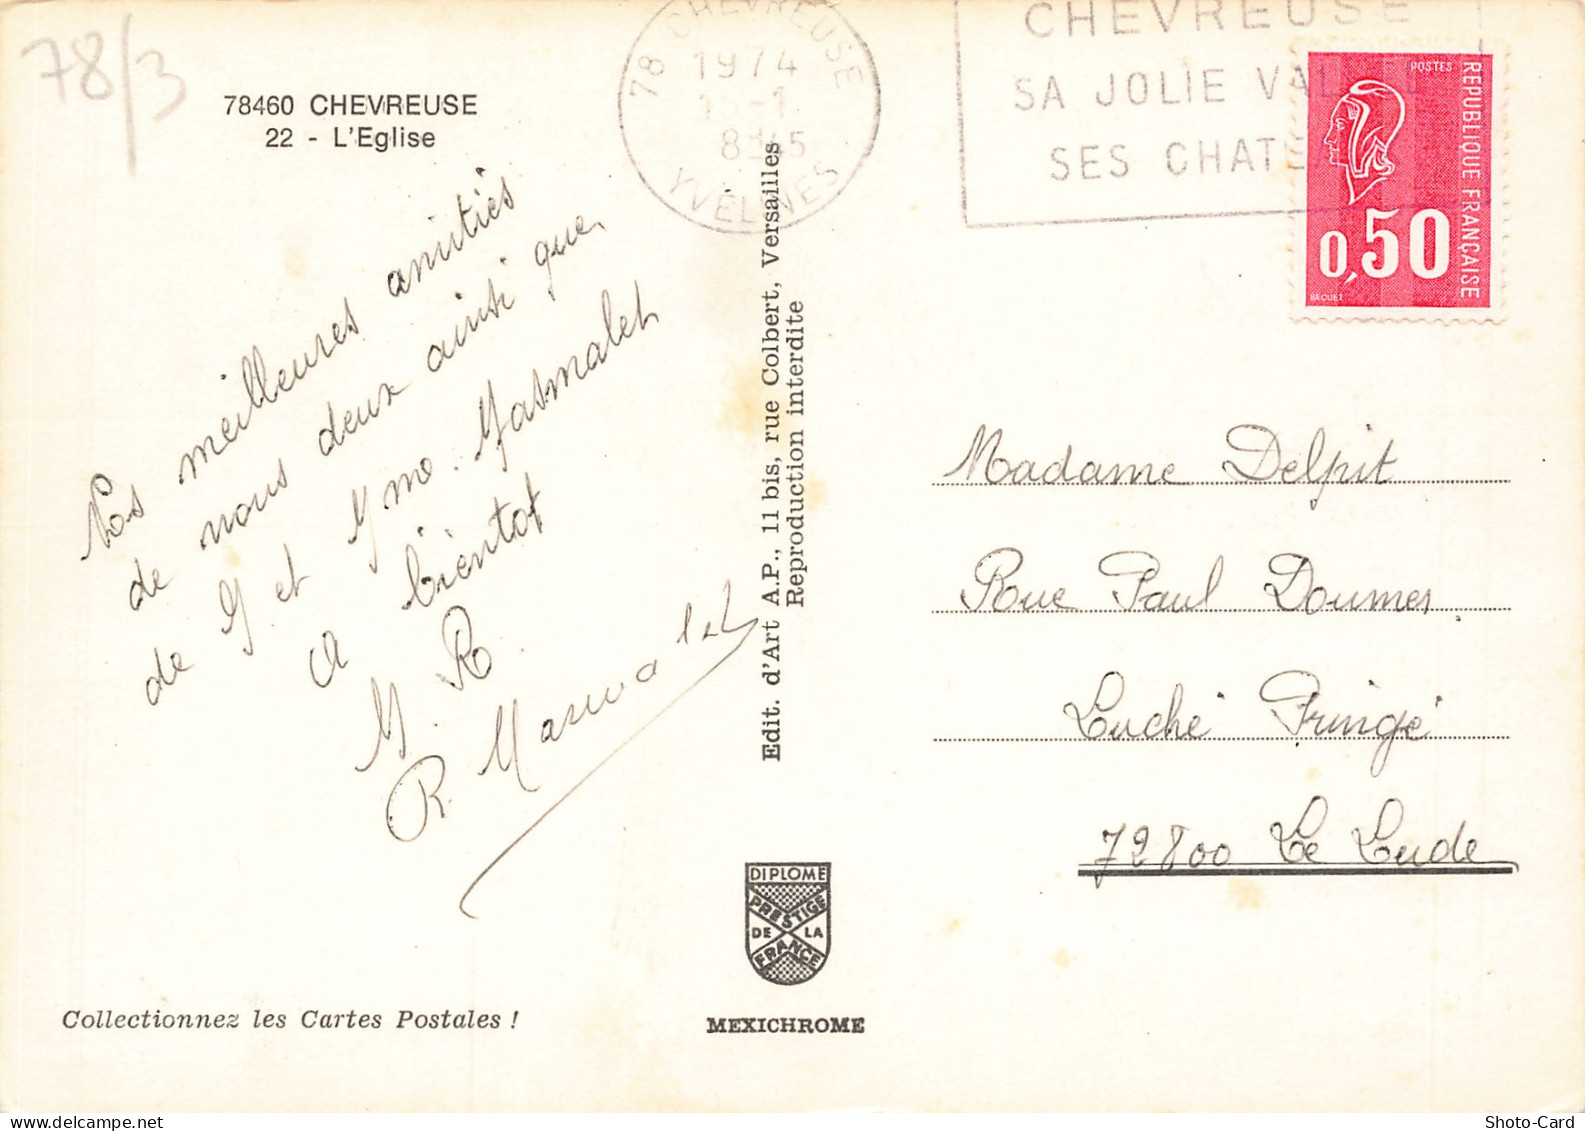 78/3
78460 CHEVREUSE
22 - L'Eglise
78 CHEVREUSE
1974
8 45
YVELINES
CHEVREUSE
SA JOLIE VALLEE
SES CHATE
POSTES
REPUBLIQUE FRANÇAISE
0,50
BEQUET
Les meilleures amitiés
de nous deux ainsi que
de M et Mme. Masmalet
a bientot
M. R.
R. Masmalet
Edit. d'Art A.P., 11 bis, rue Colbert, Versailles
Reproduction interdite
Madame Delpit
Rue Paul Doumer
Luché Pringé
72800 Le Lude
DIPLOME
PRESTIGE
DE LA
FRANCE
Collectionnez les Cartes Postales !
MEXICHROME
Shoto-Card